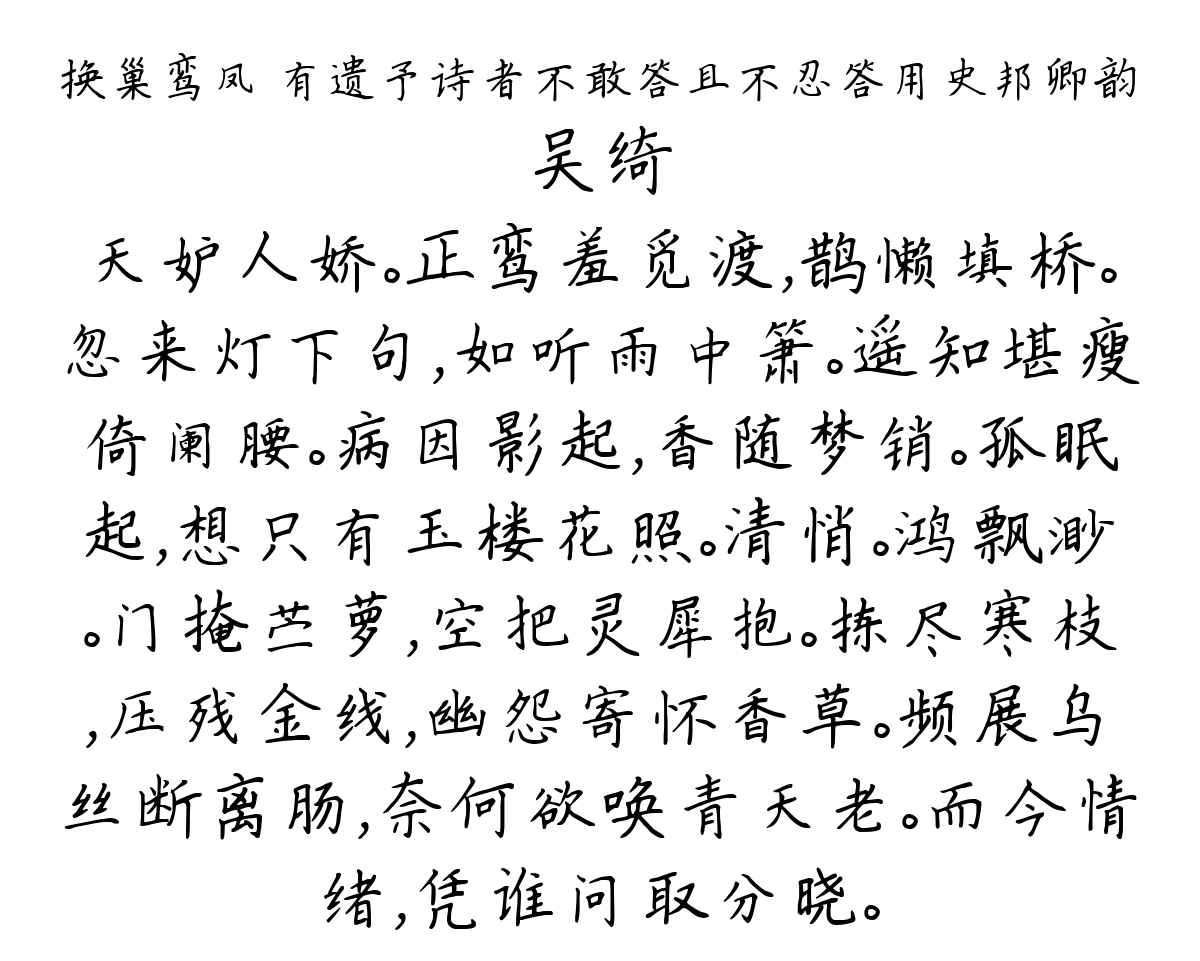 换巢鸾凤 有遗予诗者不敢答且不忍答用史邦卿韵
吴绮
天妒人娇。正鸾羞觅渡,鹊懒填桥。
忽来灯下句,如听雨中箫。遥知堪瘦
倚阑腰。病因影起,香随梦销。孤眠
起,想只有玉楼花照。清悄。鸿飘渺
。门掩苎萝,空把灵犀抱。拣尽寒枝
,压残金线,幽怨寄怀香草。频展乌
丝断离肠,奈何欲唤青天老。而今情
绪,凭谁问取分晓。